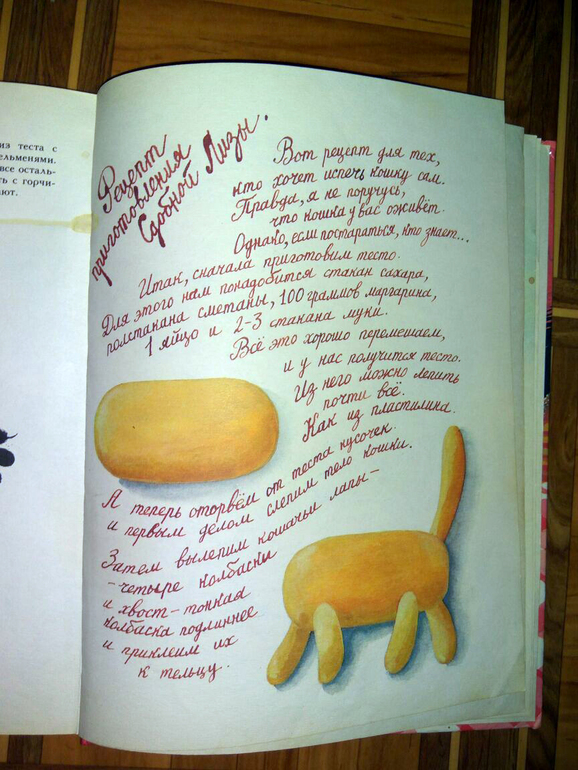 из теста с
ельменями.
все осталь-
ть с горчи-
ают.
Рецепт
приготовления
Сдобной Лизы.
Вот рецепт для тех,
кто хочет испечь кошку сам.
Правда, я не поручусь,
что кошка у вас оживёт.
Однако, если постараться, кто знает...
Итак, сначала приготовим тесто.
Для этого нам понадобится стакан сахара,
полстакана сметаны, 100 граммов маргарина,
1 яйцо и 2-3 стакана муки.
Всё это хорошо перемешаем,
и у нас получится тесто.
Из него можно лепить
почти всё.
Как из пластилина.
А теперь оторвём от теста кусочек
и первым делом слепим тело кошки.
Затем вылепим кошачьи лапы –
– четыре колбаски
и хвост – тонкая
колбаска подлиннее
и приклеим их
к тельцу.